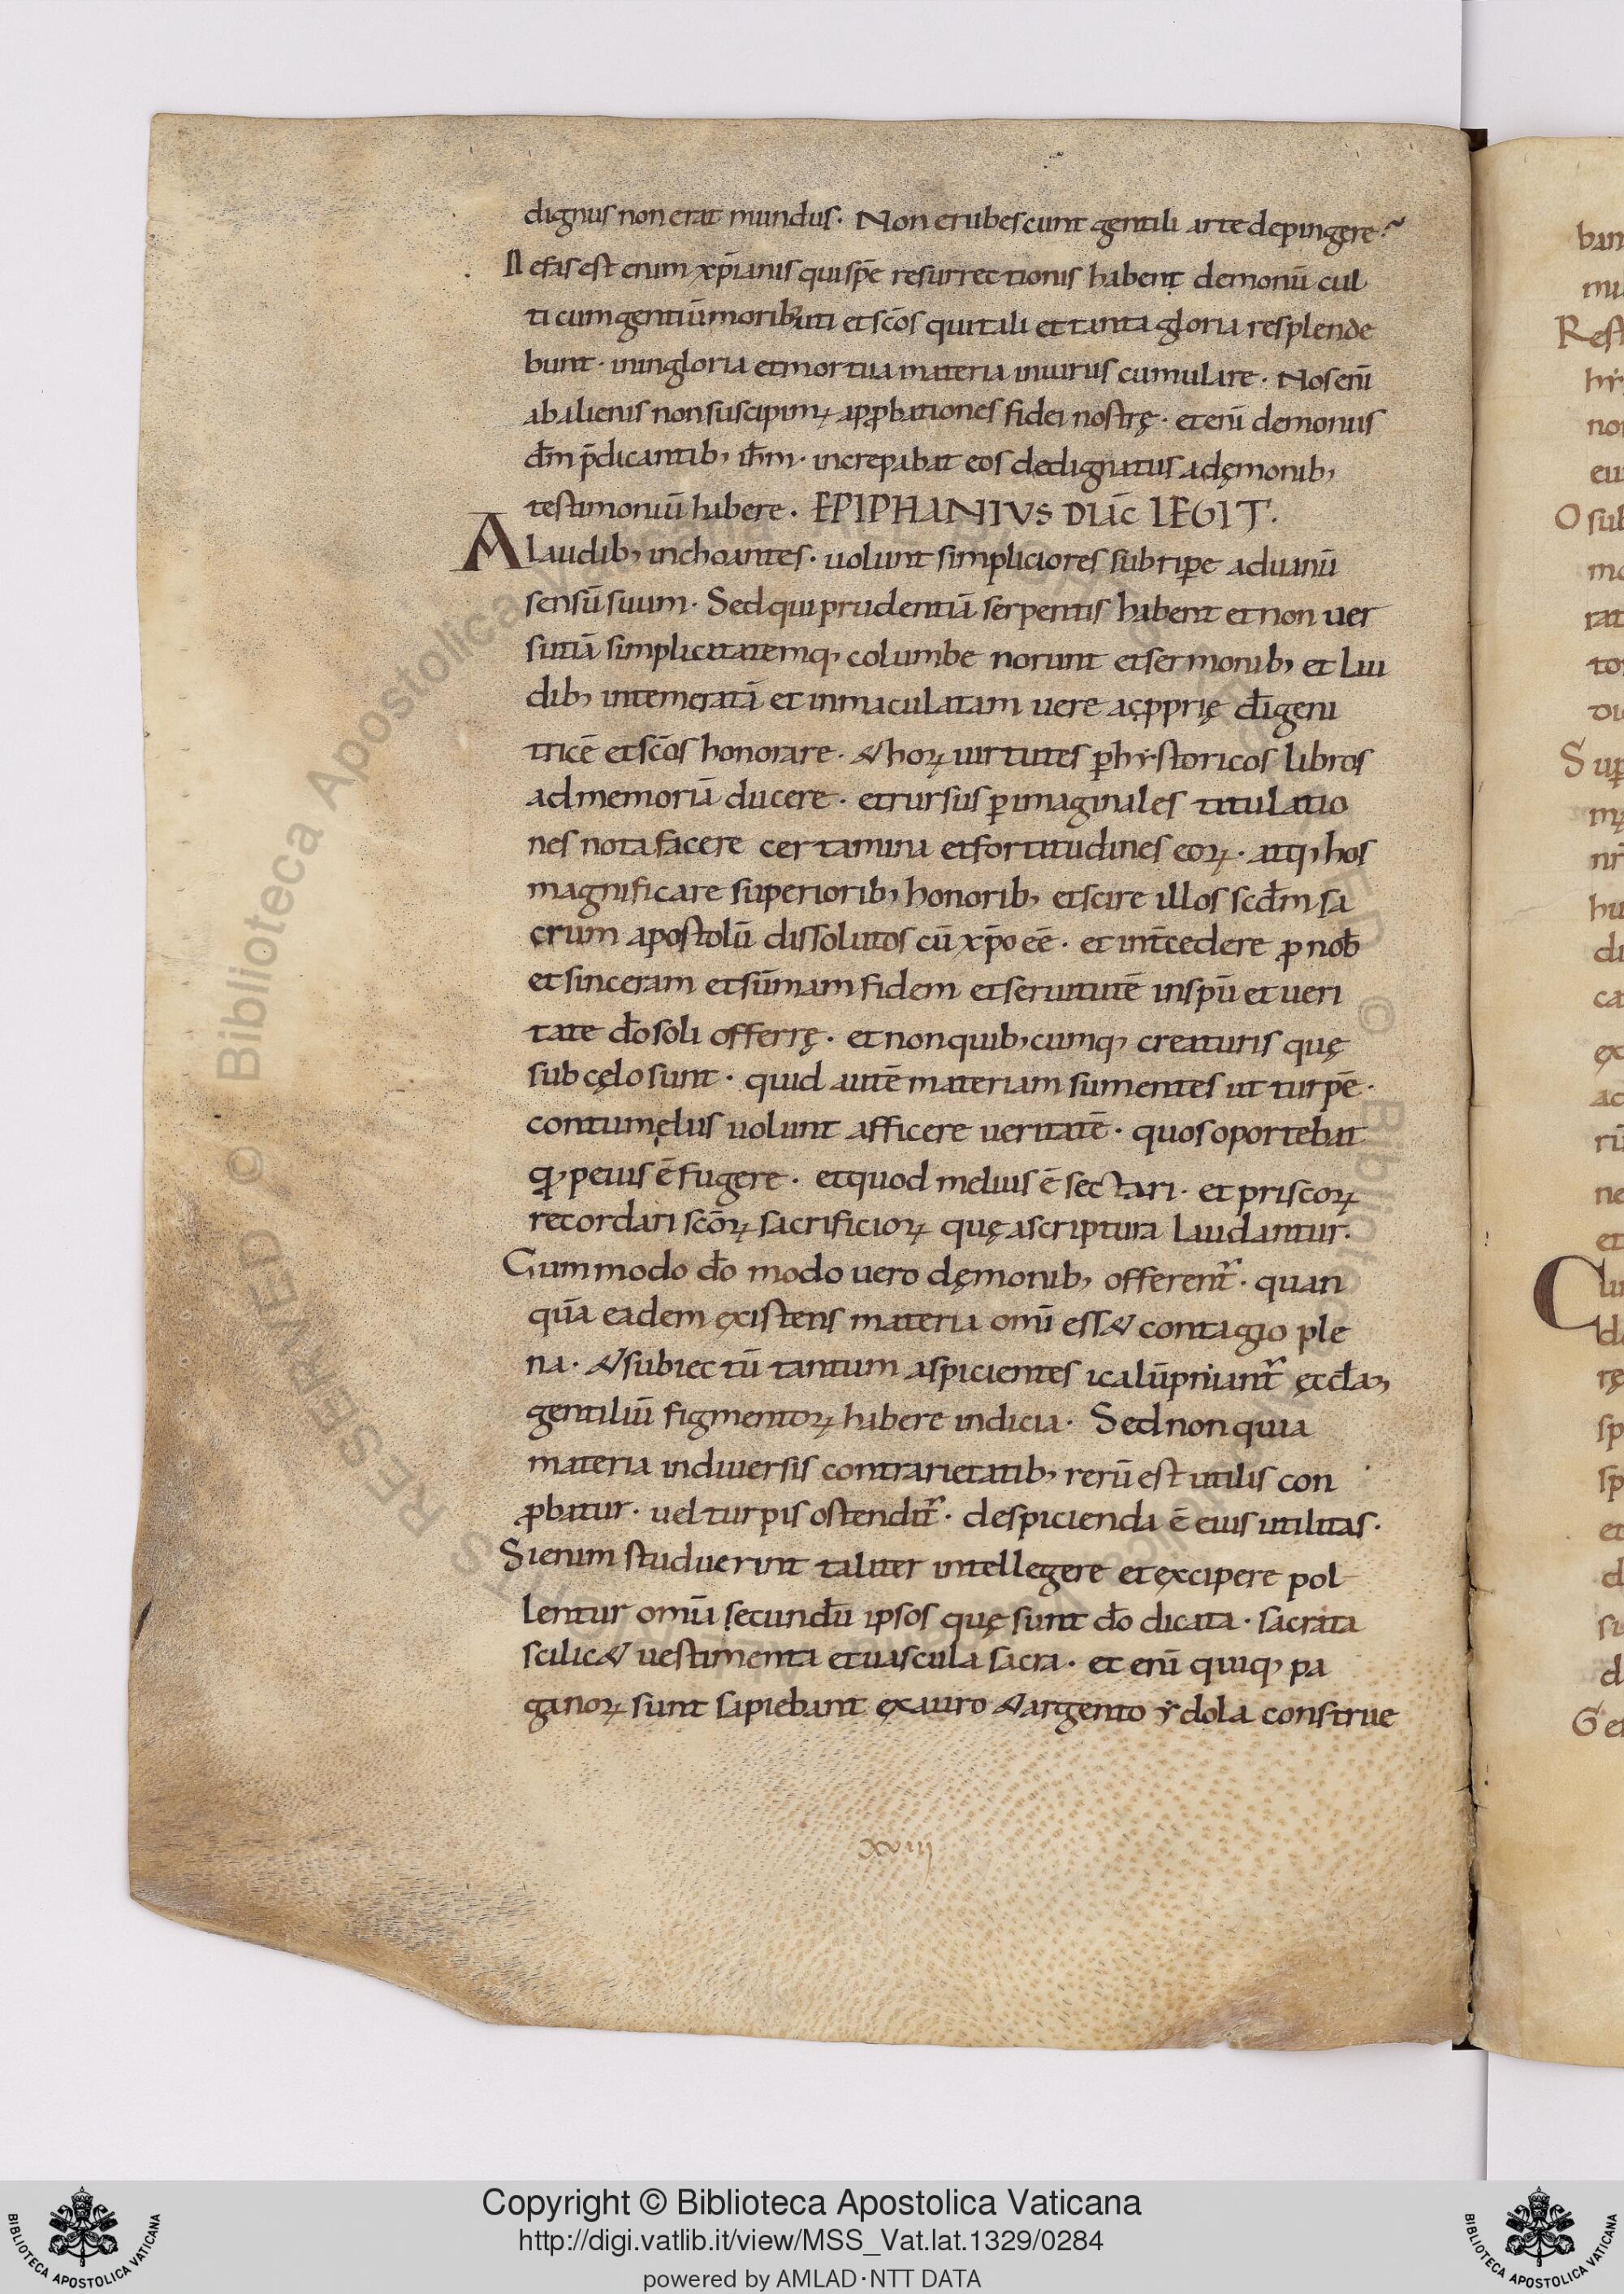 dignus non erat mundus. Non erubescunt gentili arte depingere?
Nefas est enim xp̄ianis qui spē resurrectionis habent demonū cul
ti cum gentiū moribꝰ uti et scōs qui tali et tanta gloria resplende
bunt. in ingloria et mortua materia iniuriis cumulare. Nos enī
ab alienis non suscipimꝰ apꝓbationes fidei nostrę. et enī demoniis
dm̄ p̄dicantib; ihm̄. increpabat eos dedignatus a dęmonib;
testimoniū habere. EPIPHANIVS DIAC̄ LEGIT.
A laudib; inchoantes. uolunt simpliciores subripe aduanū
sensū suum. Sed qui prudentiā serpentis habent et non uer
sutiā simplicitatemq; columbe norunt et sermonib; et lau
dib; intemeratā et inmaculatam uere ac ꝓprię dīgeni
tricē et scōs honorare. & hoꝝ uirtutes ꝑ hystoricos libros
ad memoriā ducere. et rursus ꝑ imaginales titulatio
nes nota facere certamina et fortitudines eoꝝ. atq; hos
magnificare superiorib; honorib; et scire illos scdm̄ sa
crum apostolū dissolutos cū xp̄o eē. et int̄cedere ꝓ nob̄
et sinceram et sūmam fidem et seruitutē in spū et ueri
tate dō soli offerrę. et non quib;cumq; creaturis quę
sub cęlo sunt. quid autē materiam sumentes ut turpē.
contumęliis uolunt afficere ueritatē. quos oportebat
qđ peius ē fugere. et quod melius ē sectari. et priscoꝝ
recordari scōꝝ sacrificioꝝ quę a scriptura laudantur.
Cum modo dō modo uero dęmonib; offerent᷑. quan
quā eadem existens materia omī ess& contagio ple
na. & subiectū tantum aspicientes icalūpniant᷑ ęccłam
gentiliū figmentoꝝ habere indicia. Sed non quia
materia in diuersis contrarietatib; rerū est utilis con
ꝓbatur. uel turpis ostendit᷑. despicienda ē eius utilitas.
Si enim studuerint taliter intellegere et excipere pol
lentur omīa secundū ipsos quę sunt dō dicata. sacrata
scilic& uestimenta et uascula sacra. et enī quiq; pa
ganoꝝ sunt sapiebant ex auro & argento ydola construe
xviii
Copyright © Biblioteca Apostolica Vaticana
http://digi.vatlib.it/view/MSS_Vat.lat.1329/0284
powered by AMLAD·NTT DATA